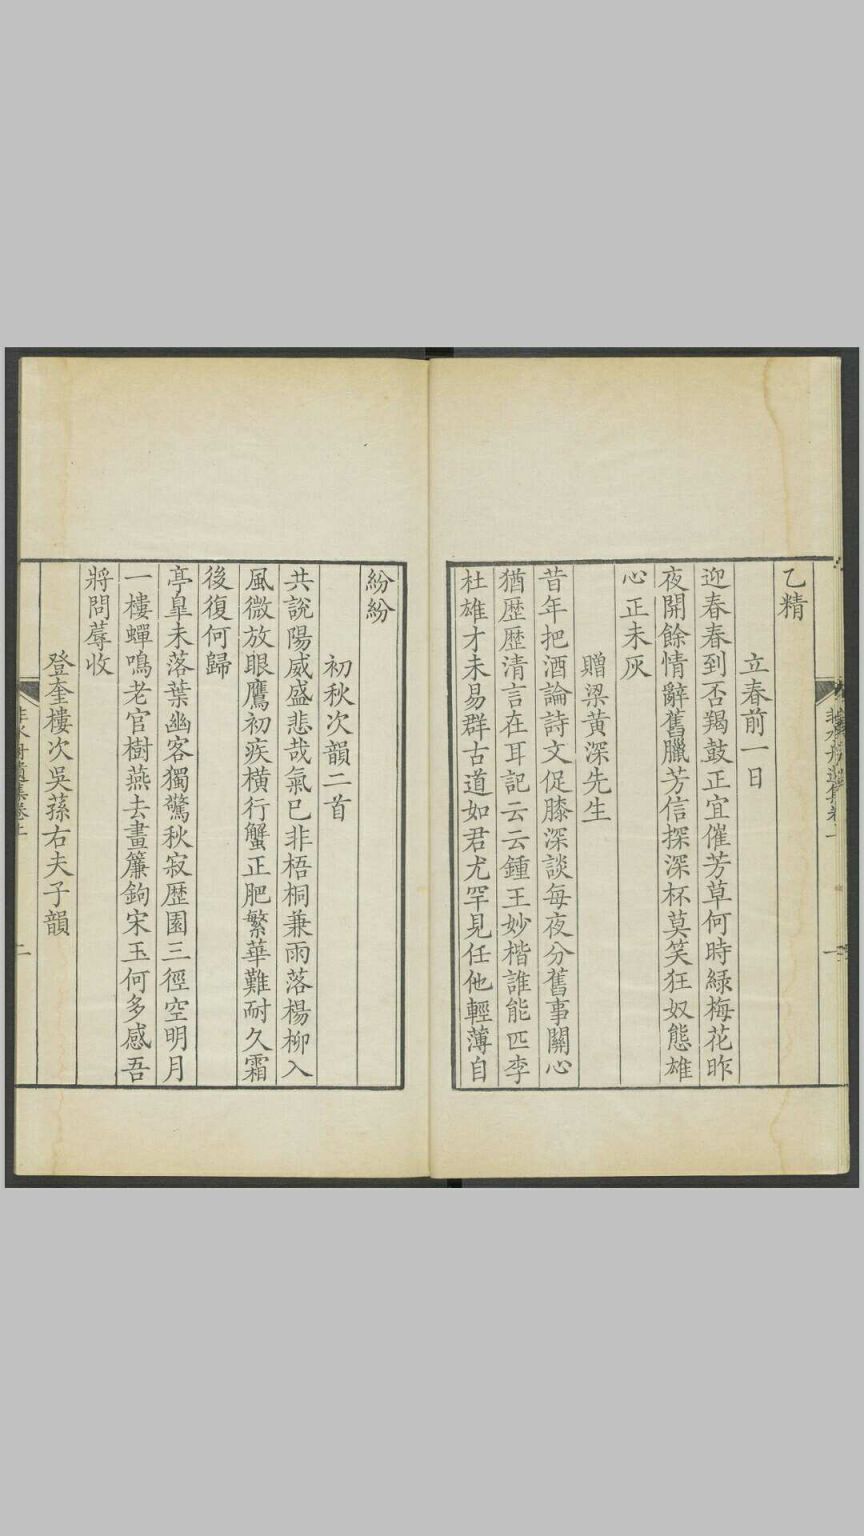 乙精
立春前一日
迎春春到否羯鼓正宜催芳草何時綠梅花昨
夜開餘情辭舊臘芳信探深杯莫笑狂奴態雄
心正未灰
贈梁黃深先生
昔年把酒論詩文促膝深談每夜分舊事關心
猶歷歷清言在耳記云云鍾王妙楷誰能匹李
杜雄才未易群古道如君尤罕見任他輕薄自
紛紛
初秋次韻二首
共說陽威盛悲哉氣已非梧桐兼雨落楊柳入
風微放眼鷹初疾橫行蟹正肥繁華難耐久霜
後復何歸
亭皐未落葉幽客獨驚秋寂歷園三徑空明月
一樓蟬鳴老官樹燕去畫簾鉤宋玉何多感吾
將問蓐收
登奎樓次吳蓀右夫子韻
二